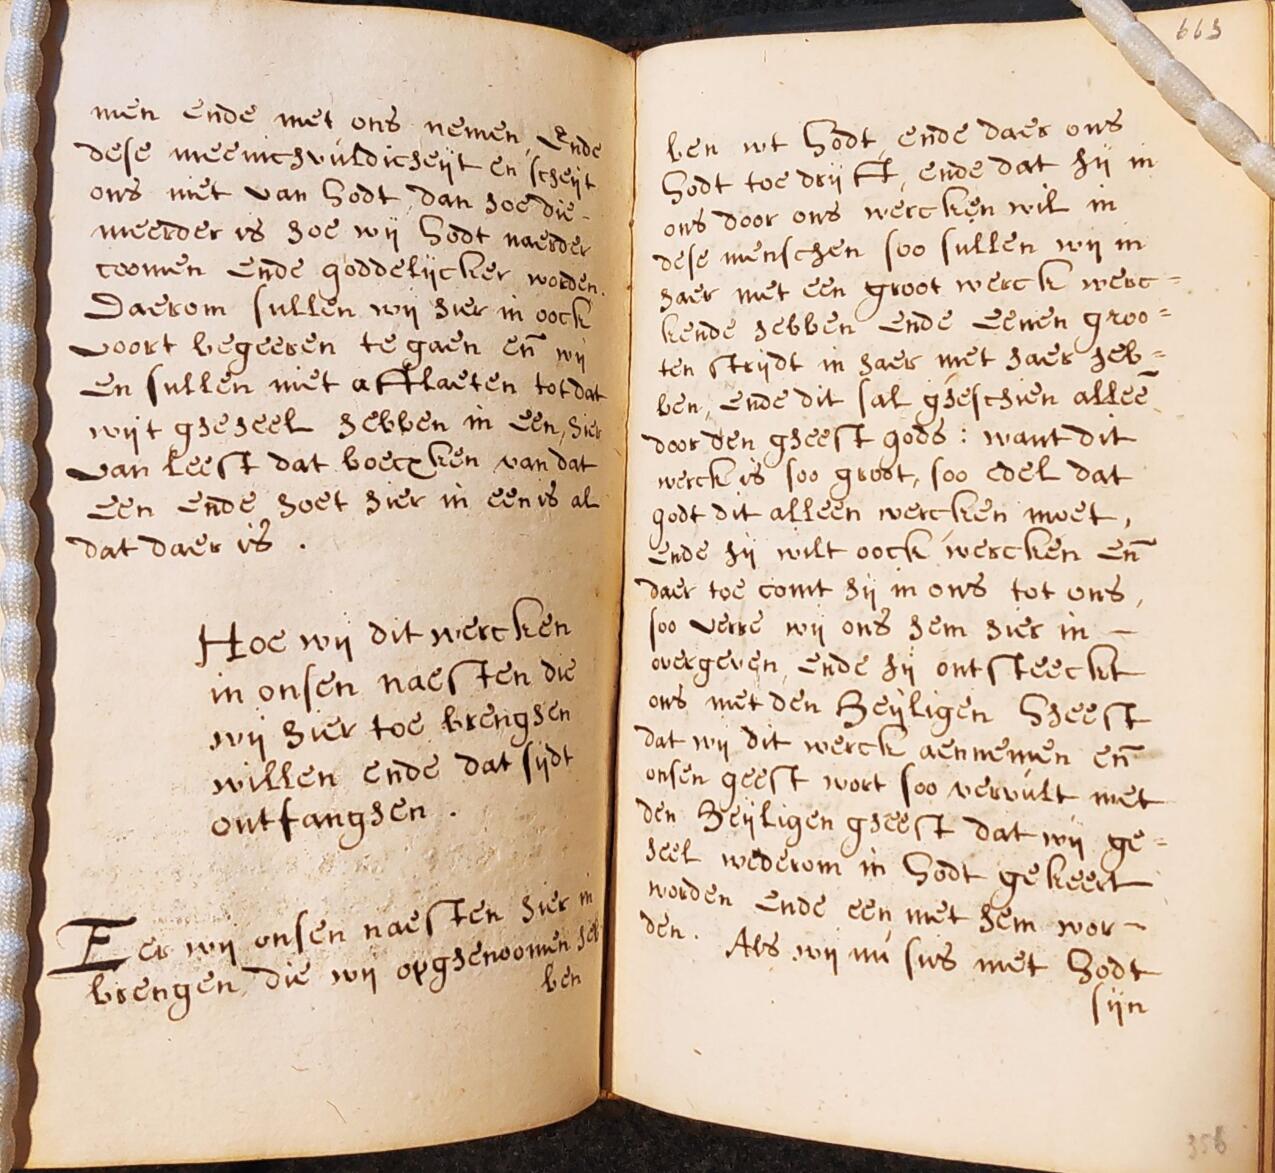 men ende met ons nemen, Ende
dese meenichvuldicheijt en scheijt
ons niet van Godt, dan hoe die
meerder is hoe wij Godt naerder
coomen ende goddelijcker worden.
Daerom sullen wij hier in oock
voort begeeren te gaen eñ wij
en sullen niet afflaeten tot dat
wijt gheheel hebben in een, hier
van leest dat boecxken van dat
een ende hoet hier in een is al
dat daer is .
Hoe wij dit wercken
in onsen naesten die
wij hier toe brenghen
willen ende dat sijdt
ontfanghen .
Eer wij onsen naesten hier in
brengen, die wij opghenoomen heb
ben
663
ben wt Godt, ende daer ons
Godt toe drijft, ende dat hij in
ons door ons wercken wil in
dese menschen soo sullen wij in
haer met een groot werck werc=
kende hebben ende eenen groo=
ten strijdt in haer met haer heb=
ben, ende dit sal gheschien alleē
door den gheest gods : want dit
werck is soo groot, soo edel dat
godt dit alleen wercken moet,
ende hij wilt oock wercken eñ
daer toe comt hij in ons tot ons,
soo verre wij ons hem hier in –
overgeven, ende hij ontsteeckt
ons met den Heijligen Gheest
dat wij dit werck aennemen eñ
onsen geest wort soo vervult met
den Heijligen gheest dat wij ge=
heel wederom in Godt gekeert
worden ende een met hem wor –
den. Als wij nu sus met Godt
sijn
356